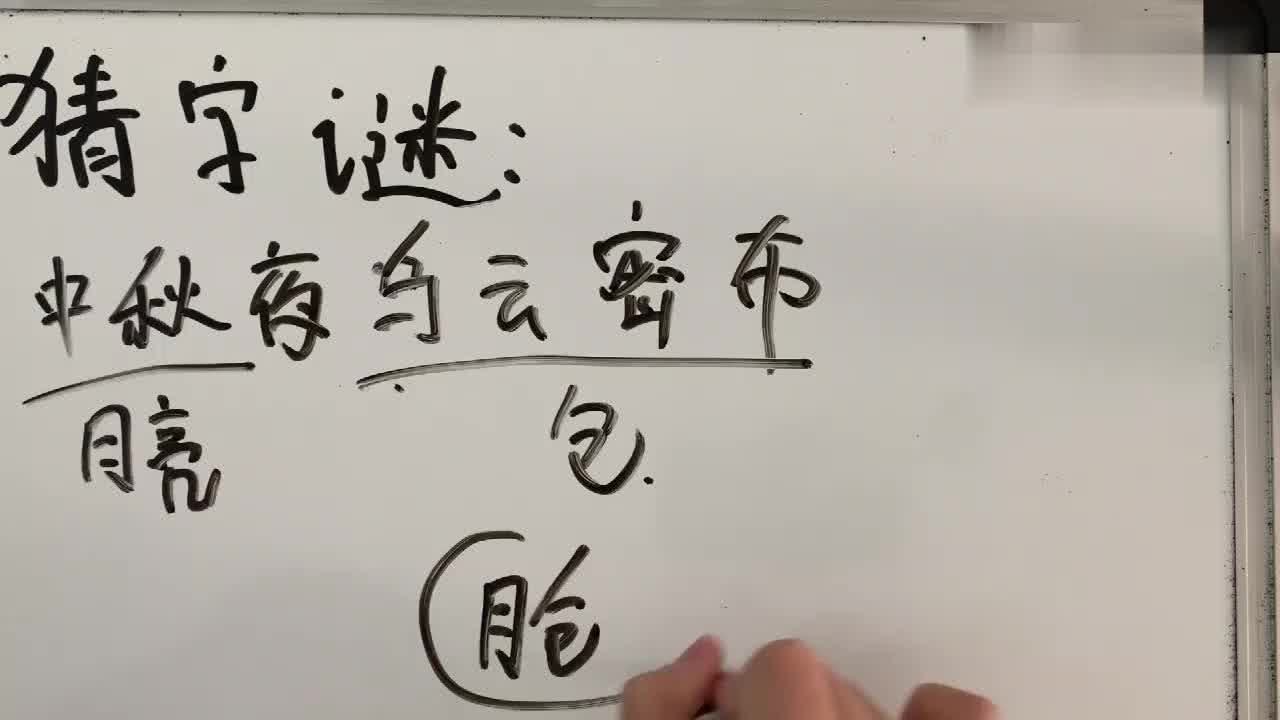 猜字谜:
中秋夜乌云密布
月亮 包.
胞